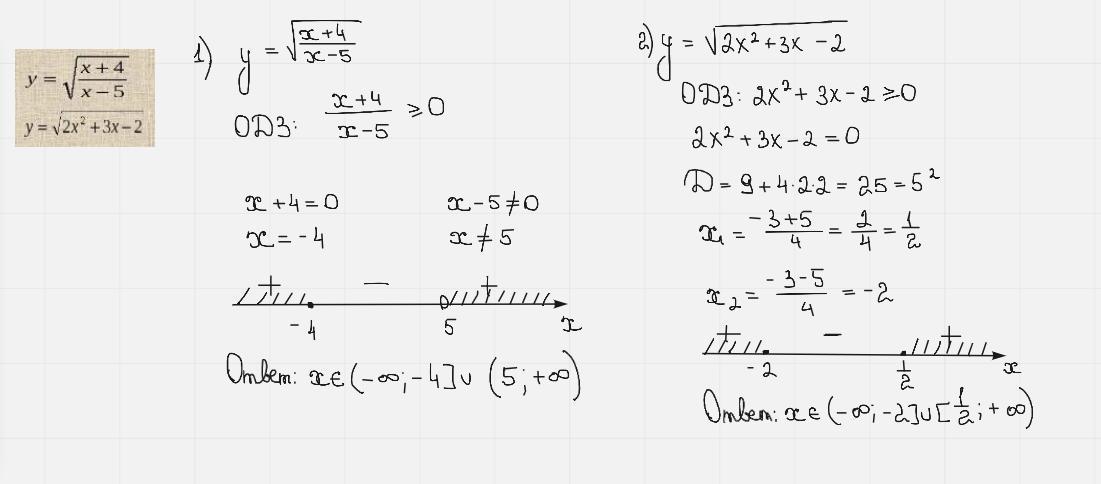 y = √((x + 4)/(x − 5))
y = √(2x² + 3x − 2)
1) y = √((x+4)/(x−5))
ОДЗ: (x+4)/(x−5) ⩾ 0
x + 4 = 0
x = −4
x − 5 ≠ 0
x ≠ 5
+ − +
−4 5 x
Ответ: x ∈ (−∞; −4] ∪ (5; +∞)
2) y = √(2x² + 3x − 2)
ОДЗ: 2x² + 3x − 2 ⩾ 0
2x² + 3x − 2 = 0
D = 9 + 4·2·2 = 25 = 5²
x₁ = (−3+5)/4 = 2/4 = 1/2
x₂ = (−3−5)/4 = −2
+ − +
−2 1/2 x
Ответ: x ∈ (−∞; −2] ∪ [1/2; +∞)